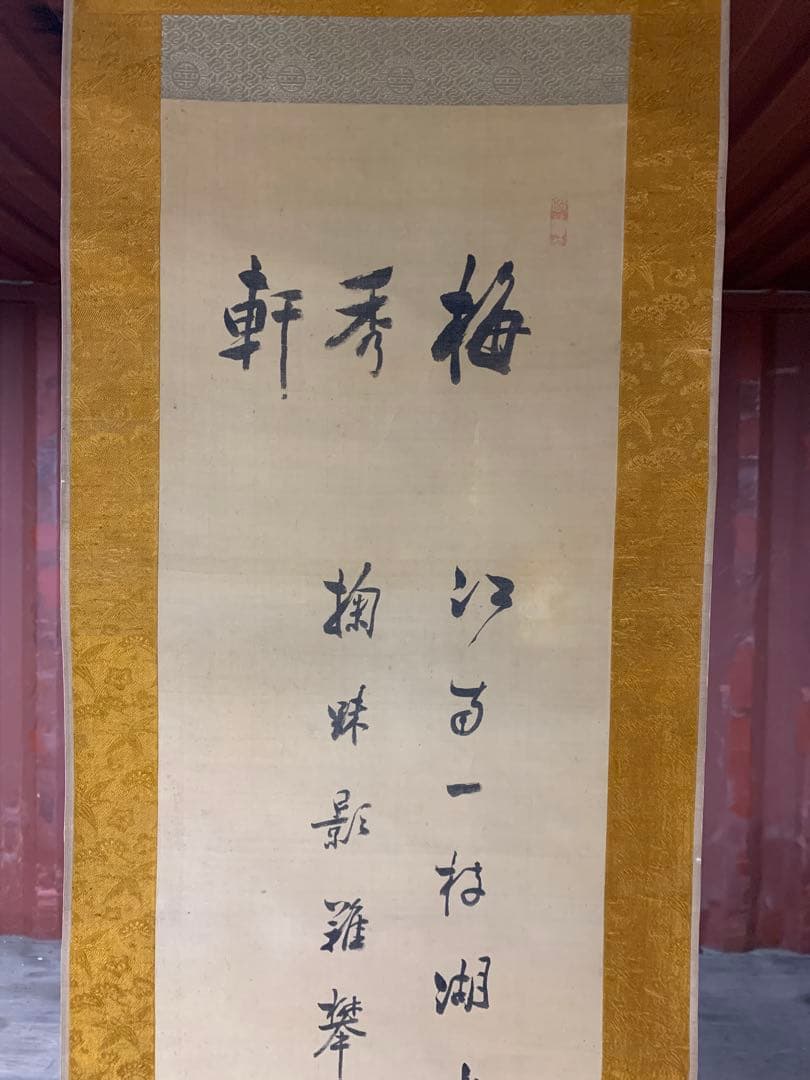 梅秀軒
江南一枝湖
掬踈影難攀